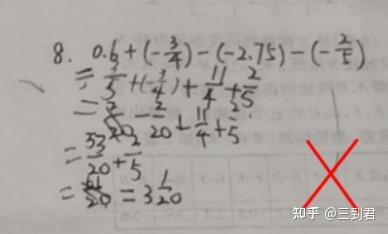 8. 0.6+(-3/4)-(-2.75)-(-2/5)
=3/5+(-3/4)+11/4+2/5
20+11/4+2/5
=53/20+2/5
=61/20=3 1/20
知乎 @三到君